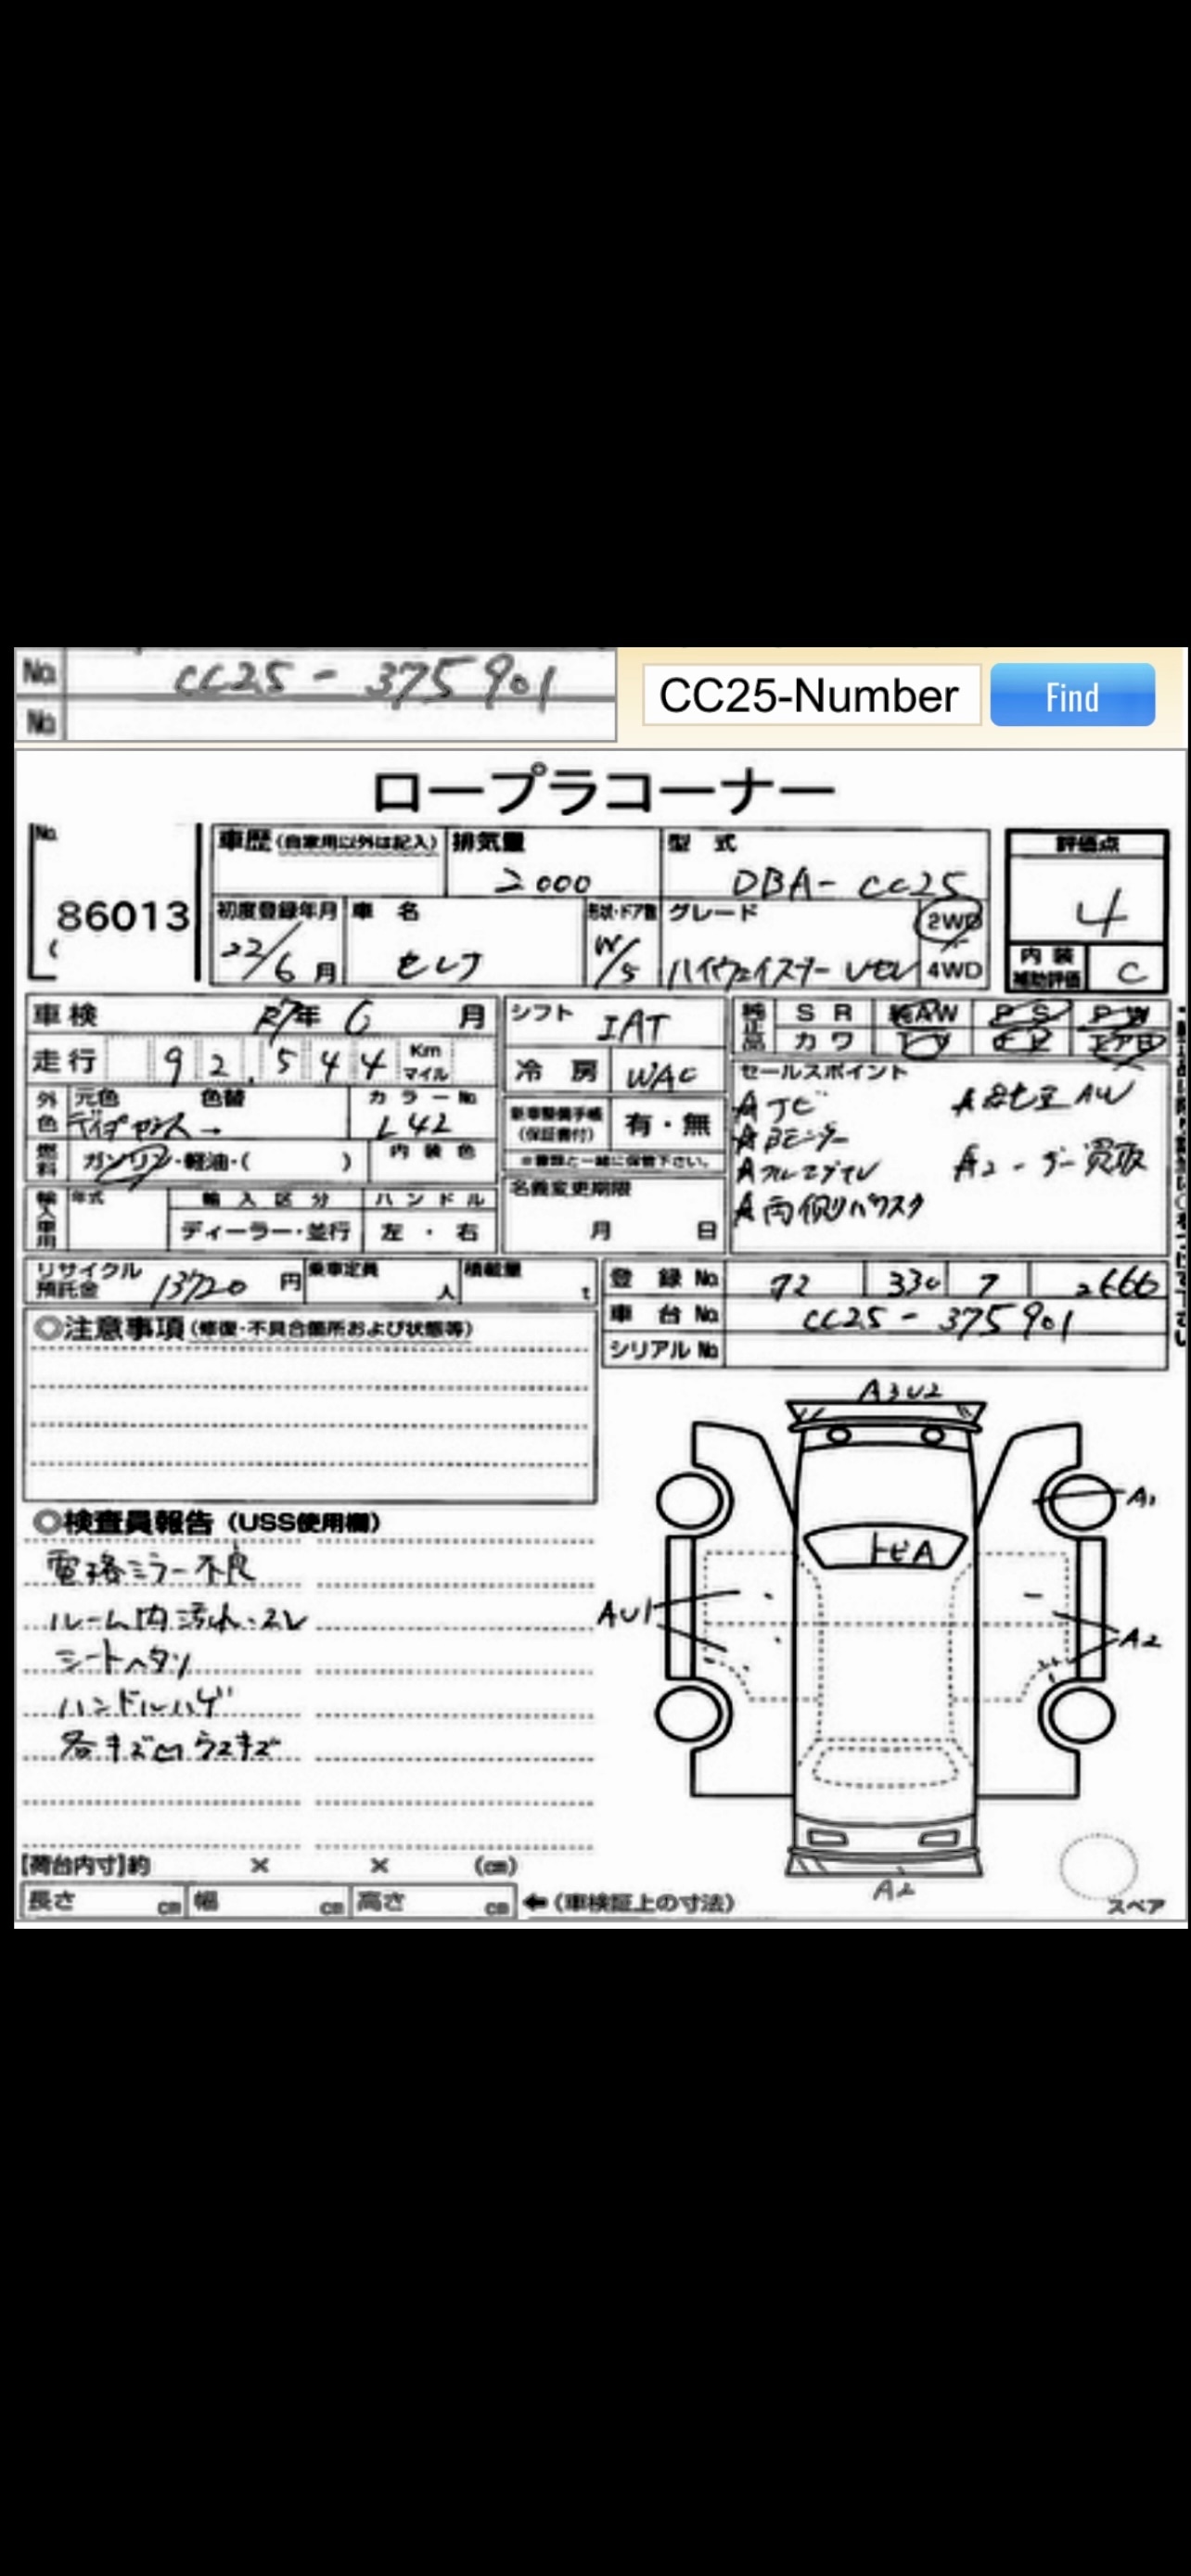 No. CC25 - 375901
No.
CC25-Number
Find
ロープラコーナー
No.
86013
車歴 (自家用以外は記入) 排気量 型 式 評価点
2000 DBA- CC25 4
初度登録年月 車 名 形状・ドア数 グレード 2WD
22/6月 セレナ W/5 ハイウェイスター Vセレ 4WD
内装補助評価 C
車検 R7年 6 月
シフト IAT
純正品 S R 純AW P S P W
カワ TV ナビ エアB
走行 92,544 Km マイル
冷 房 WAC
セールスポイント
外色 元色 色替 カラーNo.
L42
新車整備手帳 (保証書付) 有・無
※書類と一緒に保管下さい。
燃料 ガソリン・軽油・( ) 内装色
Aナビ
A純正AW
ABモニター
Aフルエアロ
Aユーザー買取
A両側パワスラ
輸入車用 年式 輸入区分 ハンドル
ディーラー・並行 左・右
名義変更期限
月 日
リサイクル預託金 13720 円 乗車定員 人 積載量 t
登 録 No. 72 330 7 2666
車 台 No. CC25 - 375901
シリアル No.
◎注意事項 (修復・不具合箇所および状態等)
A3U2
A1
トビA
AU1
A2
A2
スペア
◎検査員報告 (USS使用欄)
電格ミラー不良
ルーム内汚れ・スレ
シートヘタリ
ハンドルハゲ
各キズ凹ウスキズ
【荷台内寸】約 × × (cm)
長さ cm 幅 cm 高さ cm ←(車検証上の寸法)